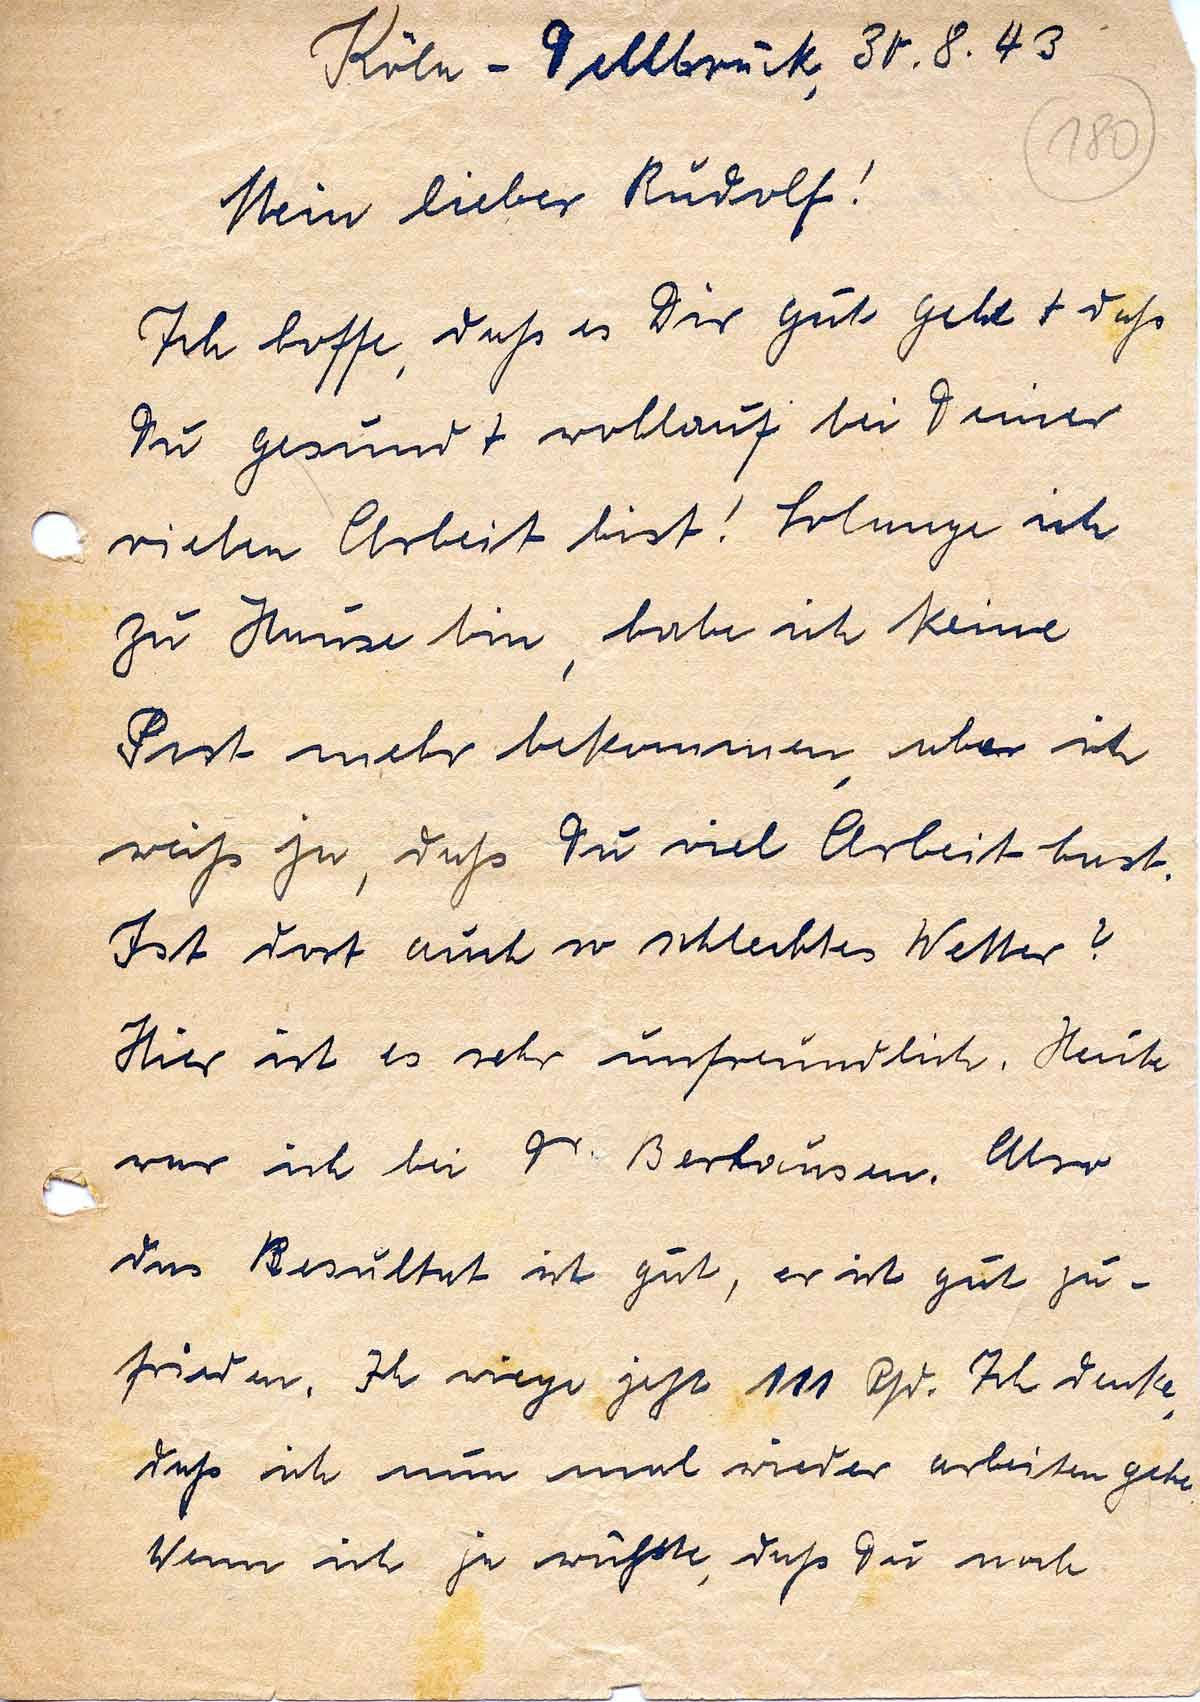 Köln - Dellbrück, 30.8.43
180
Mein lieber Rudolf!
Ich hoffe, daß es Dir gut geht + daß
Du gesund + wohlauf bei Deiner
vielen Arbeit bist! Solange ich
zu Hause bin, habe ich keine
Post mehr bekommen, aber ich
weiß ja, daß Du viel Arbeit hast.
Ist dort auch so schlechtes Wetter?
Hier ist es sehr unfreundlich. Heute
war ich bei Dr. Berhausen. Also
das Resultat ist gut, er ist gut zu-
frieden. Ich wiege jetzt 111 Pfd. Ich denke,
daß ich nun mal wieder arbeiten gehe.
Wenn ich ja wüßte, daß Du noch